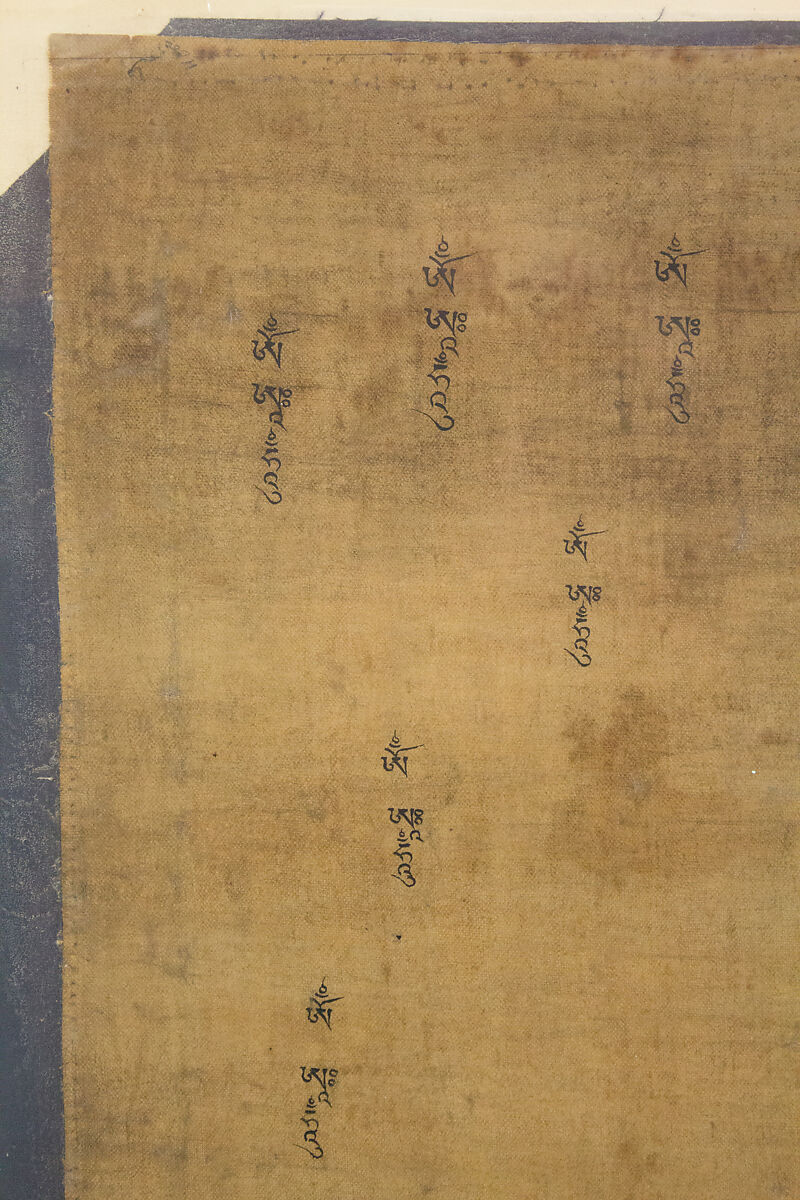 ཨོཾ
ཨཱཿ
ཧཱུྃ
ཨོཾ
ཨཱཿ
ཧཱུྃ
ཨོཾ
ཨཱཿ
ཧཱུྃ
ཨོཾ
ཨཱཿ
ཧཱུྃ
ཨོཾ
ཨཱཿ
ཧཱུྃ
ཨོཾ
ཨཱཿ
ཧཱུྃ